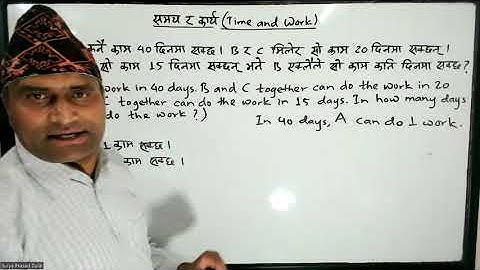 समय र कार्य (Time and Work)
कुनै काम 40 दिनमा सक्छ। B र C मिलेर सो काम 20 दिनमा सक्छन्।
सो काम 15 दिनमा सक्छन् भने B एक्लैले सो काम कति दिनमा सक्छ?
work in 40 days. B and C together can do the work in 20
C together can do the work in 15 days. In how many days
do the work?)
In 40 days, A can do 1 work.
1 काम सक्छ।
काम सक्छ।